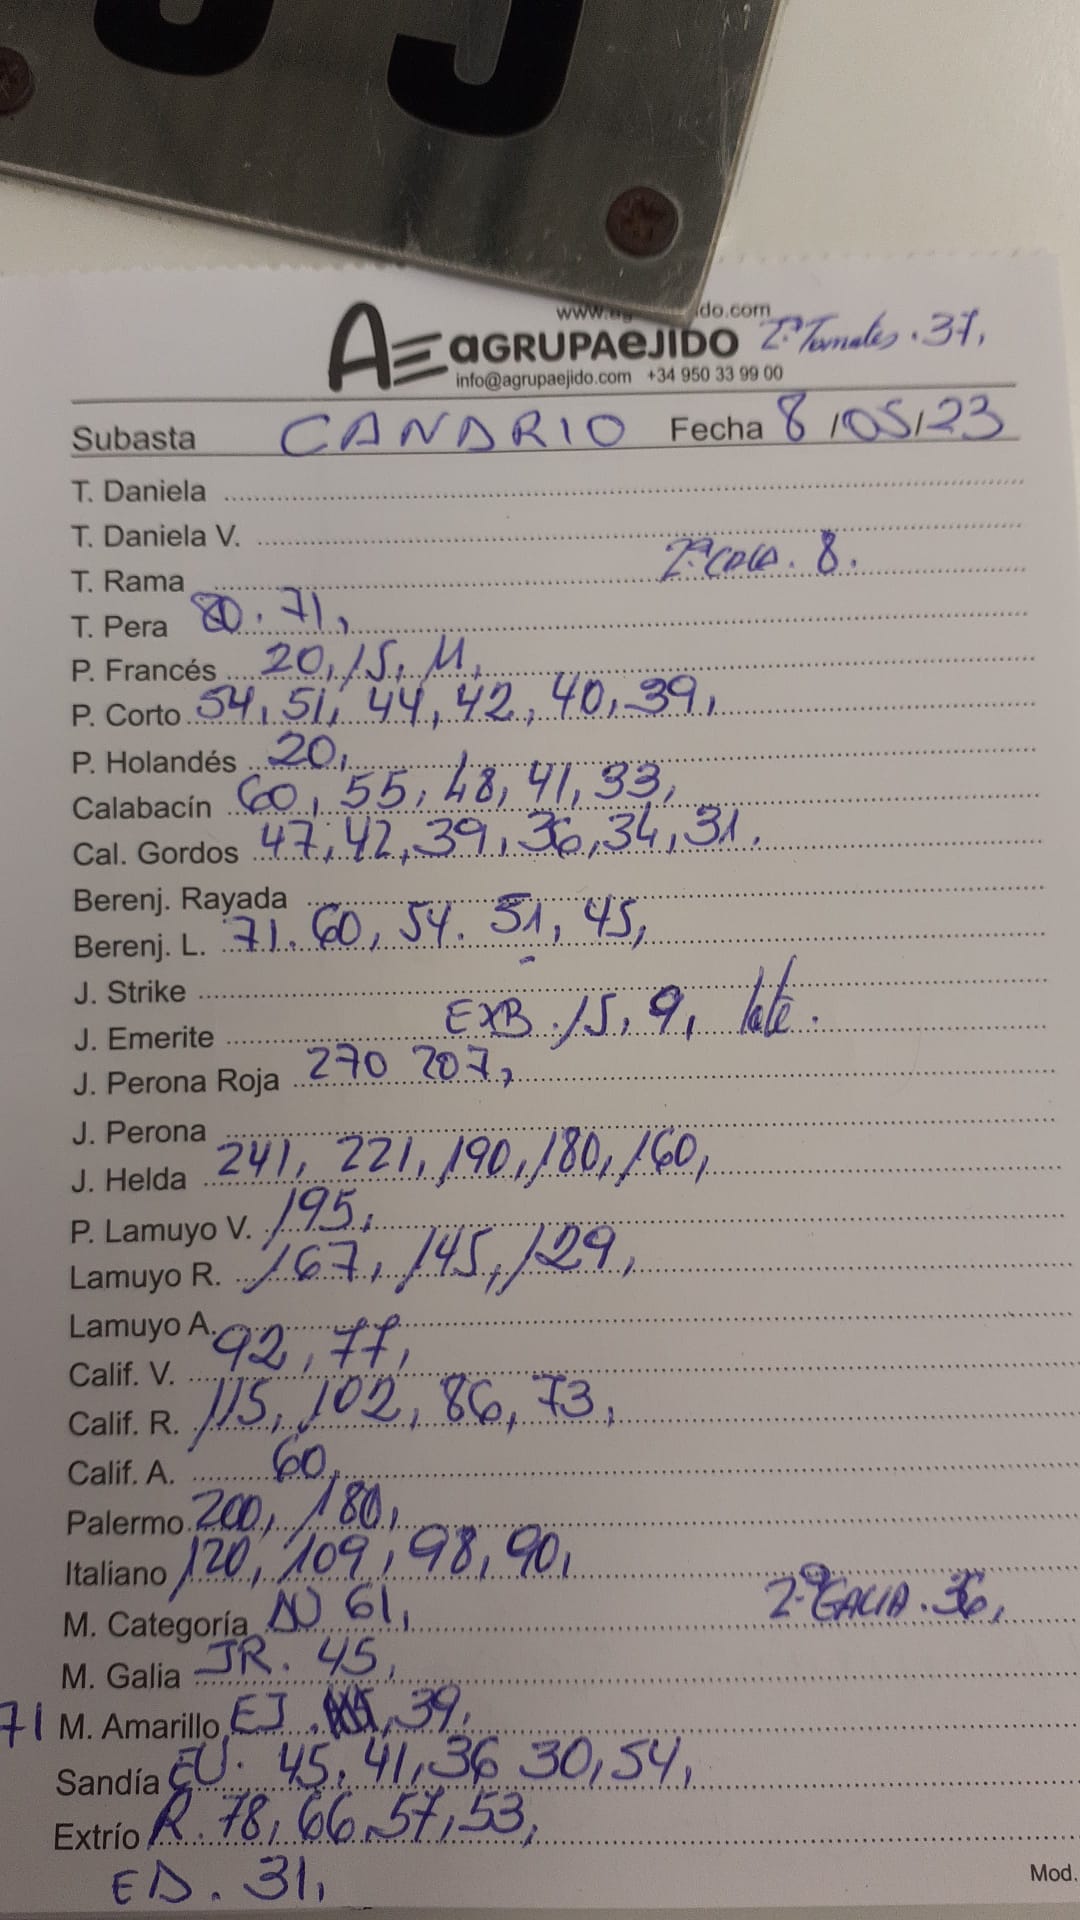 do.com
AE aGRUPAeJIDO 2ª Tomates. 37,
info@agrupaejido.com +34 950 33 99 00
Subasta CANARIO Fecha 8/05/23
T. Daniela
T. Daniela V.
T. Rama 2ª COCA. 8.
T. Pera 80. 71,
P. Francés 20, 15, 11,
P. Corto 54, 51, 44, 42, 40, 39,
P. Holandés 20,
Calabacín 60, 55, 48, 41, 33,
Cal. Gordos 47, 42, 39, 36, 34, 31.
Berenj. Rayada
Berenj. L. 71. 60, 54. 51, 45,
J. Strike
J. Emerite EXB. 15, 9,
J. Perona Roja 270 207,
J. Perona
J. Helda 241, 221, 190, 180, 160,
P. Lamuyo V. 195,
Lamuyo R. 167, 145, 129,
Lamuyo A.
Calif. V. 92, 77,
Calif. R. 115, 102, 86, 73,
Calif. A. 60,
Palermo 200, 180,
Italiano 120, 109, 98, 90,
M. Categoría 61, 2ª GALIA. 36,
M. Galia JR. 45,
71 M. Amarillo EJ. 39,
Sandía EU. 45, 41, 36 30, 54,
Extrío R. 78, 66, 57, 53,
ED. 31,
Mod.